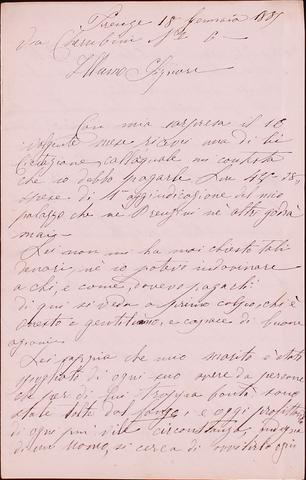 Firenze 18 Gennaio
Via Cherubini N° 6
Illumo Signore
Con mia sorpresa il 10
mese ricevo una di lei
citazione, colla quale mi contesta
che io debbo pagarle Lire
spese di aggiudicazione del mio
palazzo che nè nè altri godrà
mai
Lei non mi ha mai chiesto tali
denari, nè io potevo indovinare
a chi, e come, dovevo pagarli
di qui si vede a primo colpo, chi è
onesto e gentiluomo, e capace di buone
azioni
Lei sappia che mio marito è stato
spogliato di ogni suo avere da persone
che per di lui troppa bontà sono
state tolte dal fango, e oggi
di ogni più vile circostanza, indegna
di un Uomo, si cerca di ogni